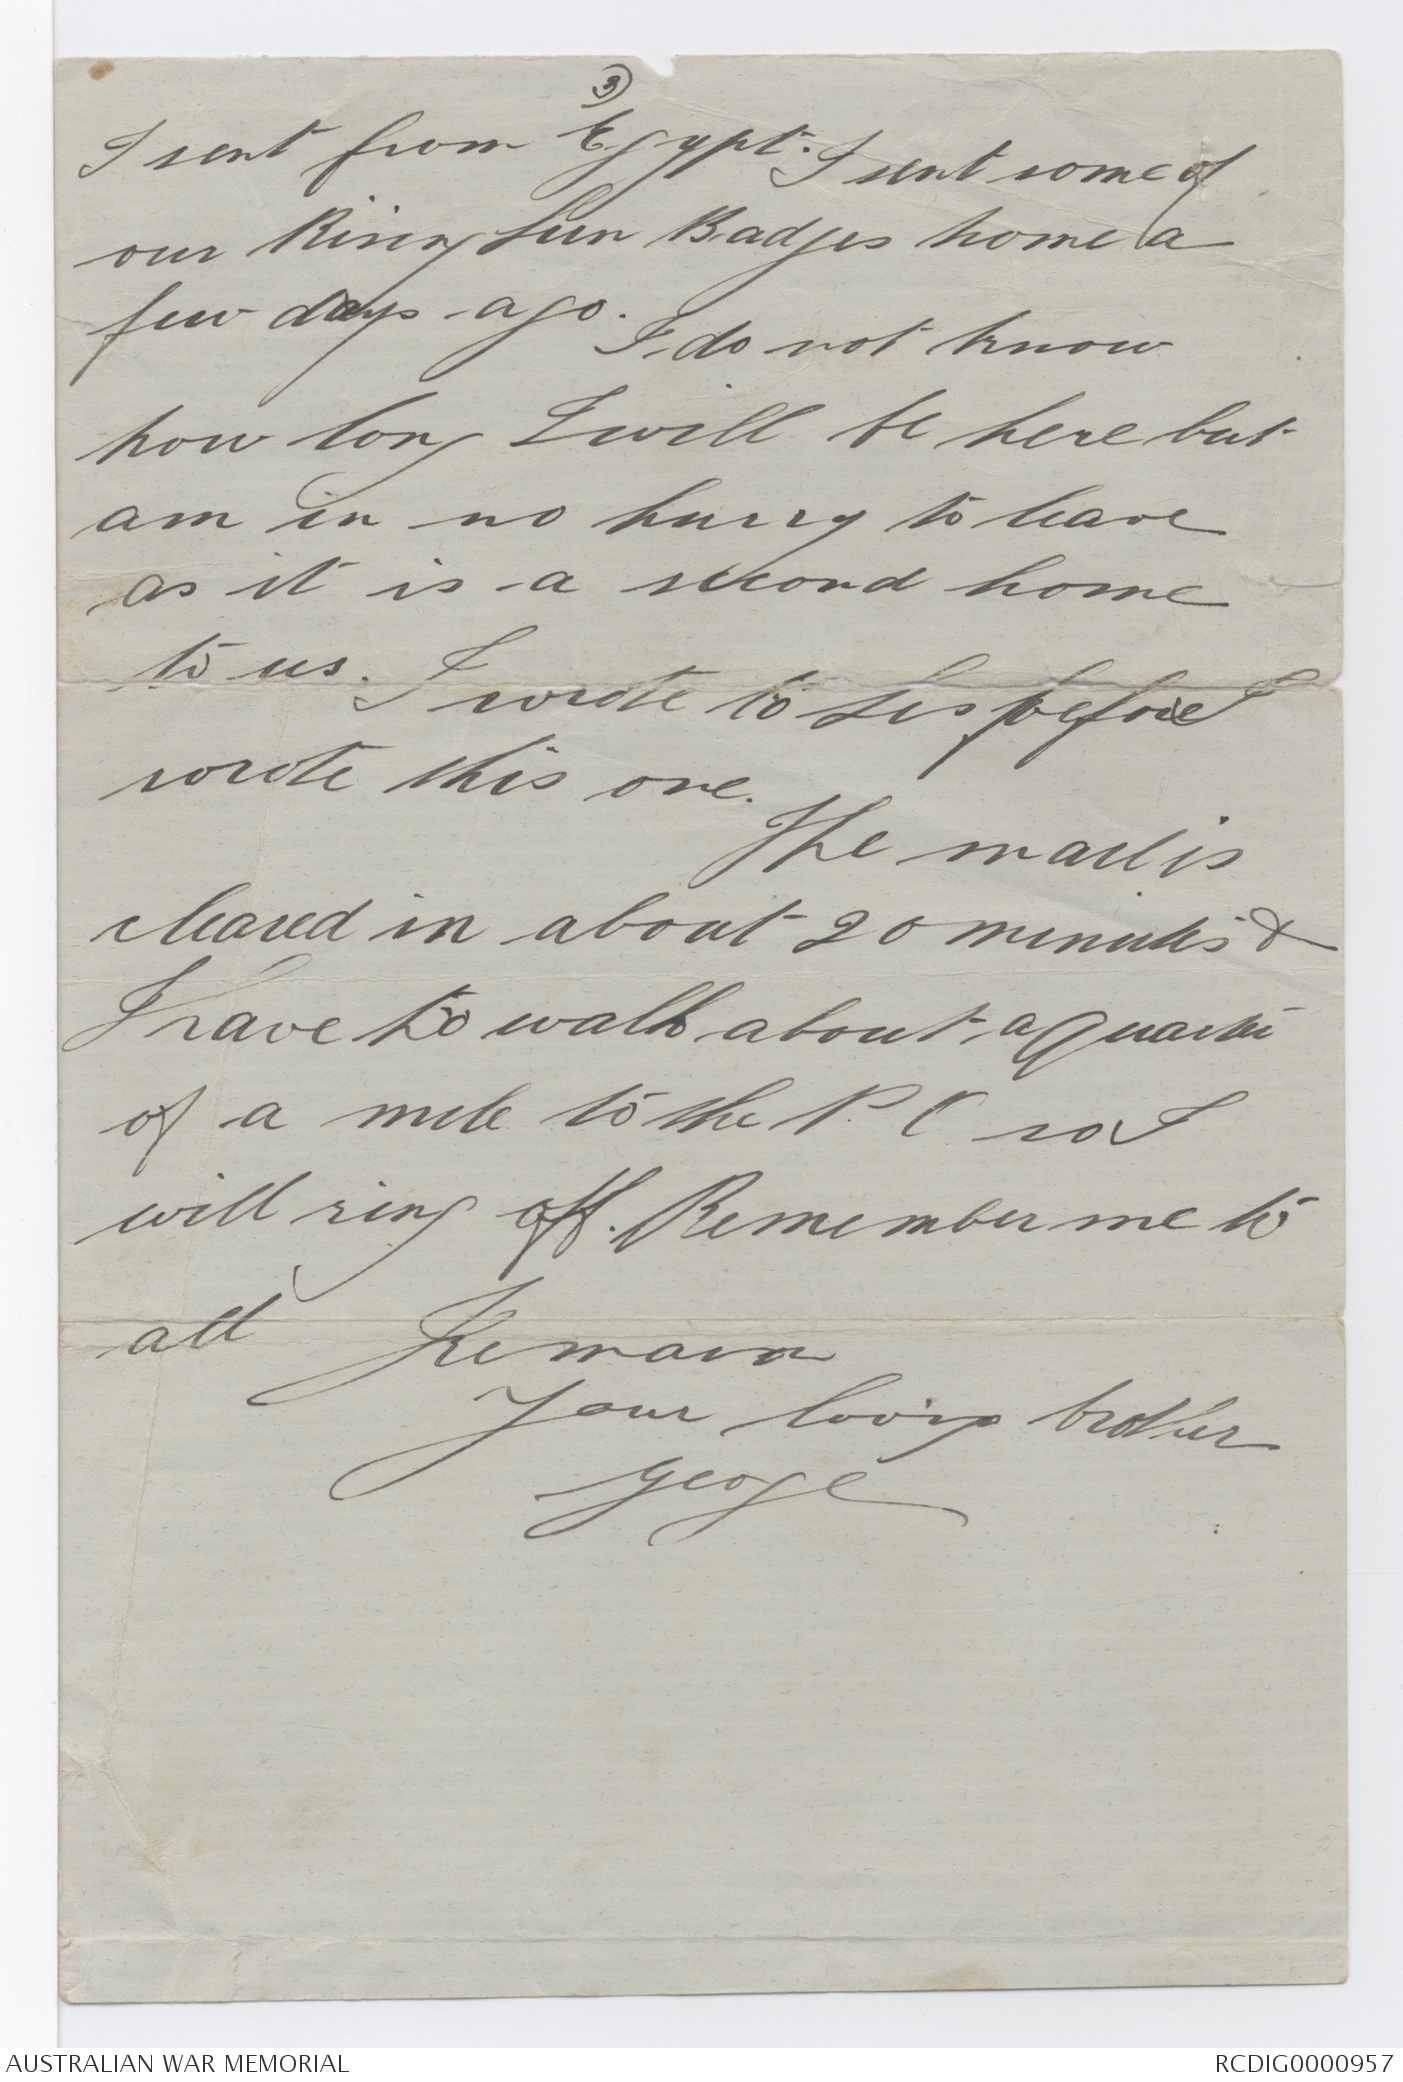 3
I sent from Egypt. I sent some of
our Rising Sun Badges home a
few days ago.
I do not know
how long I will be here but
am in no hurry to leave
as it is a second home
to us.
I wrote to Les before I
wrote this one.
The mail is
cleared in about 20 minutes &
I have to walk about a quarter
of a mile to the P. O so I
will ring off. Remember me to
all
Remain
Your loving brother
George
AUSTRALIAN WAR MEMORIAL
RCDIG0000957